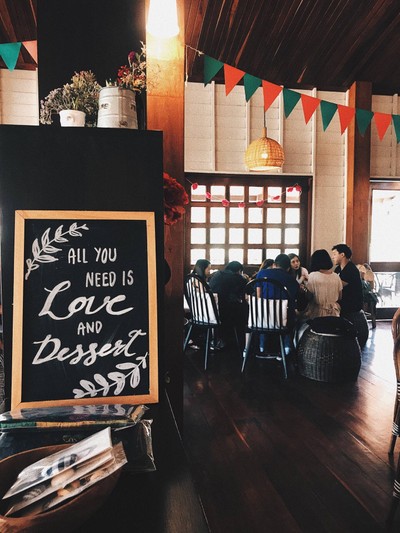 ALL YOU
NEED IS
Love
AND
Dessert